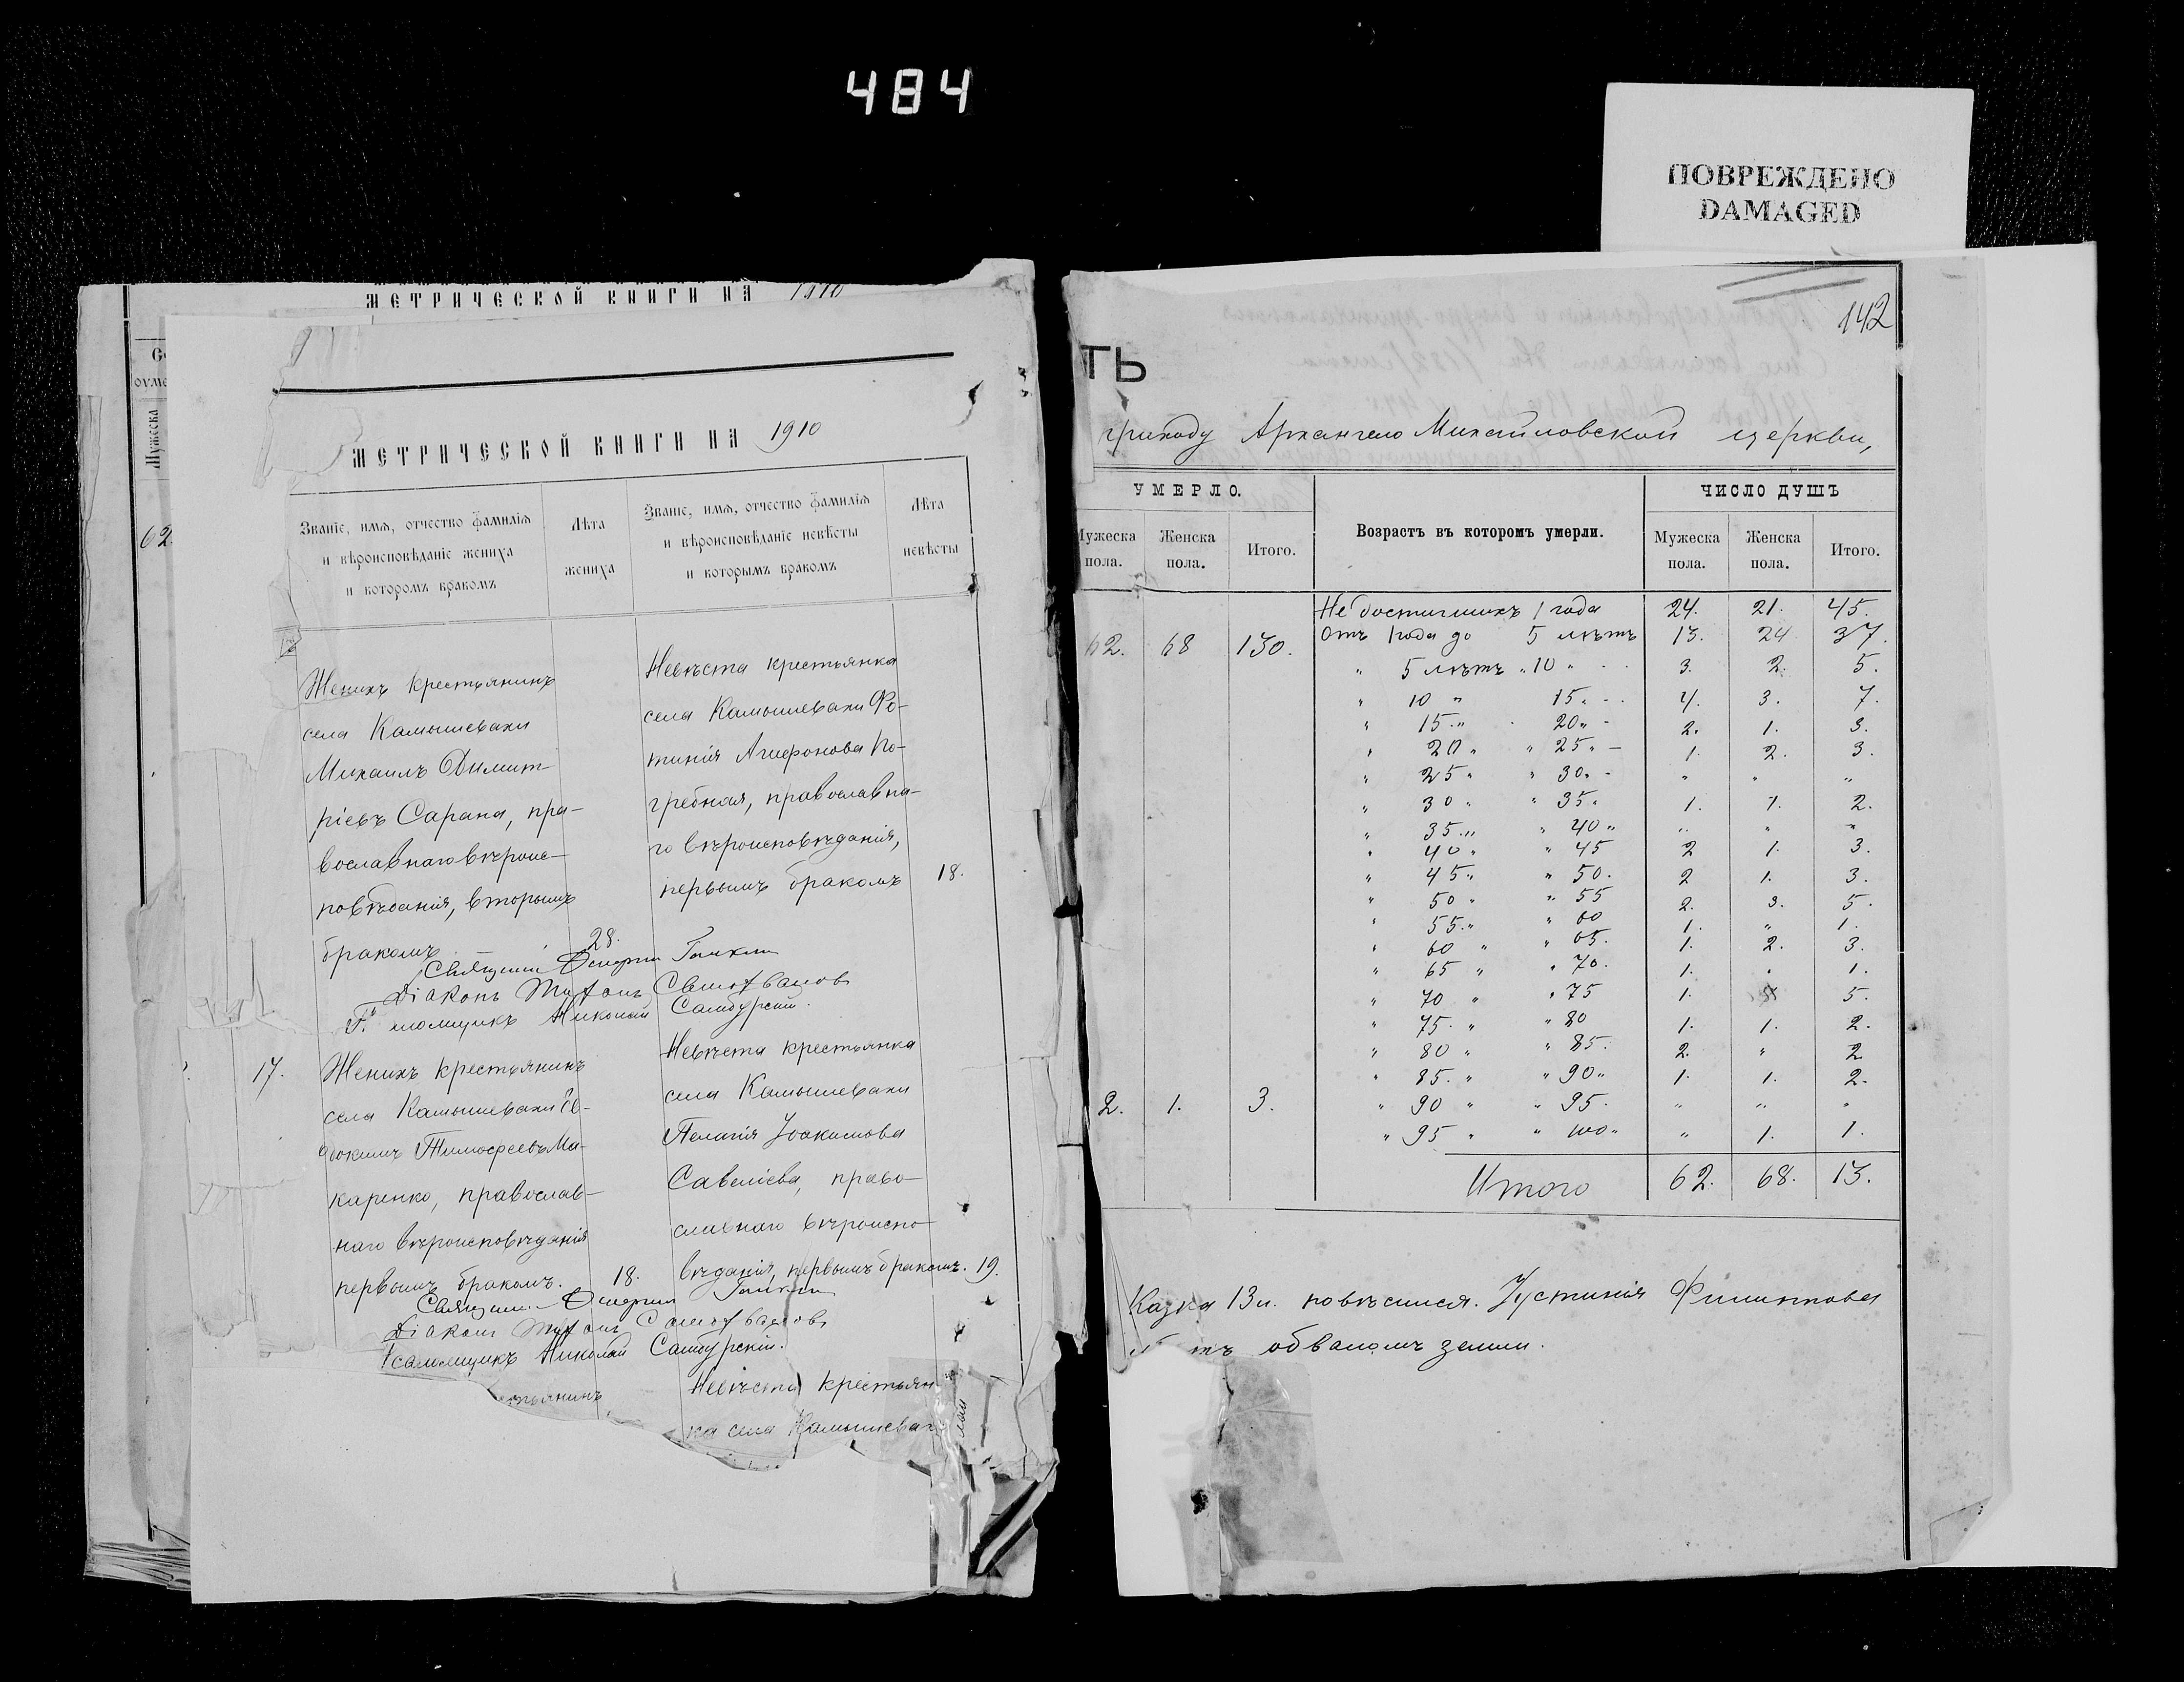 484
ПОВРЕЖДЕНО
DAMAGED
МЕТРИЧЕСКОЙ КНИГИ НА 1910
Мужеска
62.
МЕТРИЧЕСКОЙ КНИГИ НА 1910
Званіе, имя, отчество фамилія
и вѣроисповѣданіе жениха
и которомъ бракомъ
Лѣта
жениха
Званіе, имя, отчество фамилія
и вѣроисповѣданіе невѣсты
и которымъ бракомъ
Лѣта
невѣсты
Женихъ крестьянинъ
села Камышевахи
Михаилъ Димит-
ріевъ Сарана, пра-
вославнаго вѣроис-
повѣданія, вторымъ
бракомъ 28.
Невѣста крестьянка
села Камышевахи Фо-
тинія Агафонова По-
гребная, православна-
го вѣроисповѣданія,
первымъ бракомъ 18.
Діаконъ
Николай Самбурскій.
17.
Женихъ крестьянинъ
села Камышевахи Ев-
докимъ Тимофеевъ Ма-
каренко, православ-
наго вѣроисповѣданія
первымъ бракомъ. 18.
Невѣста крестьянка
села Камышевахи
Пелагія Іоакимова
Савеліева, право-
славнаго вѣроиспо-
вѣданія, первымъ бракомъ. 19.
Діаконъ
Псаломщикъ Николай Самбурскій.
Невѣста крестьян
ка села Камышевах
142
ТЬ
приходу Архангело Михайловской церкви,
УМЕРЛО.
Мужеска пола.
Женска пола.
Итого.
Возрастъ въ которомъ умерли.
ЧИСЛО ДУШЪ
Мужеска пола.
Женска пола.
Итого.
Не достигшихъ 1 года 24. 21. 45.
62. 68 130. Отъ 1 года до 5 лѣтъ 13. 24 37.
" 5 лѣтъ " 10 " 3. 2. 5.
" 10 " 15 " 4. 3. 7.
" 15 " 20 " 2. 1. 3.
" 20 " " 25 " 1. 2. 3.
" 25 " " 30 " " " "
" 30 " " 35 " 1. 1. 2.
" 35 " " 40 " " " "
" 40 " " 45 2 1. 3.
" 45 " " 50. 2 1. 3.
" 50 " " 55 2. 3. 5.
" 55 " " 60 1. " 1.
" 60 " " 65. 1. 2. 3.
" 65 " " 70. 1. " 1.
" 70 " " 75 1. 5.
" 75 " " 80 1. 1. 2.
" 80 " " 85. 2. " 2
" 85 " " 90 " 1. 1. 2.
2. 1. 3. " 90 " " 95. " " "
" 95 " " 100 " " 1. 1.
Итого 62. 68. 13.
13 л. повѣсился. Іустинія Филиппова
обваломъ земли.